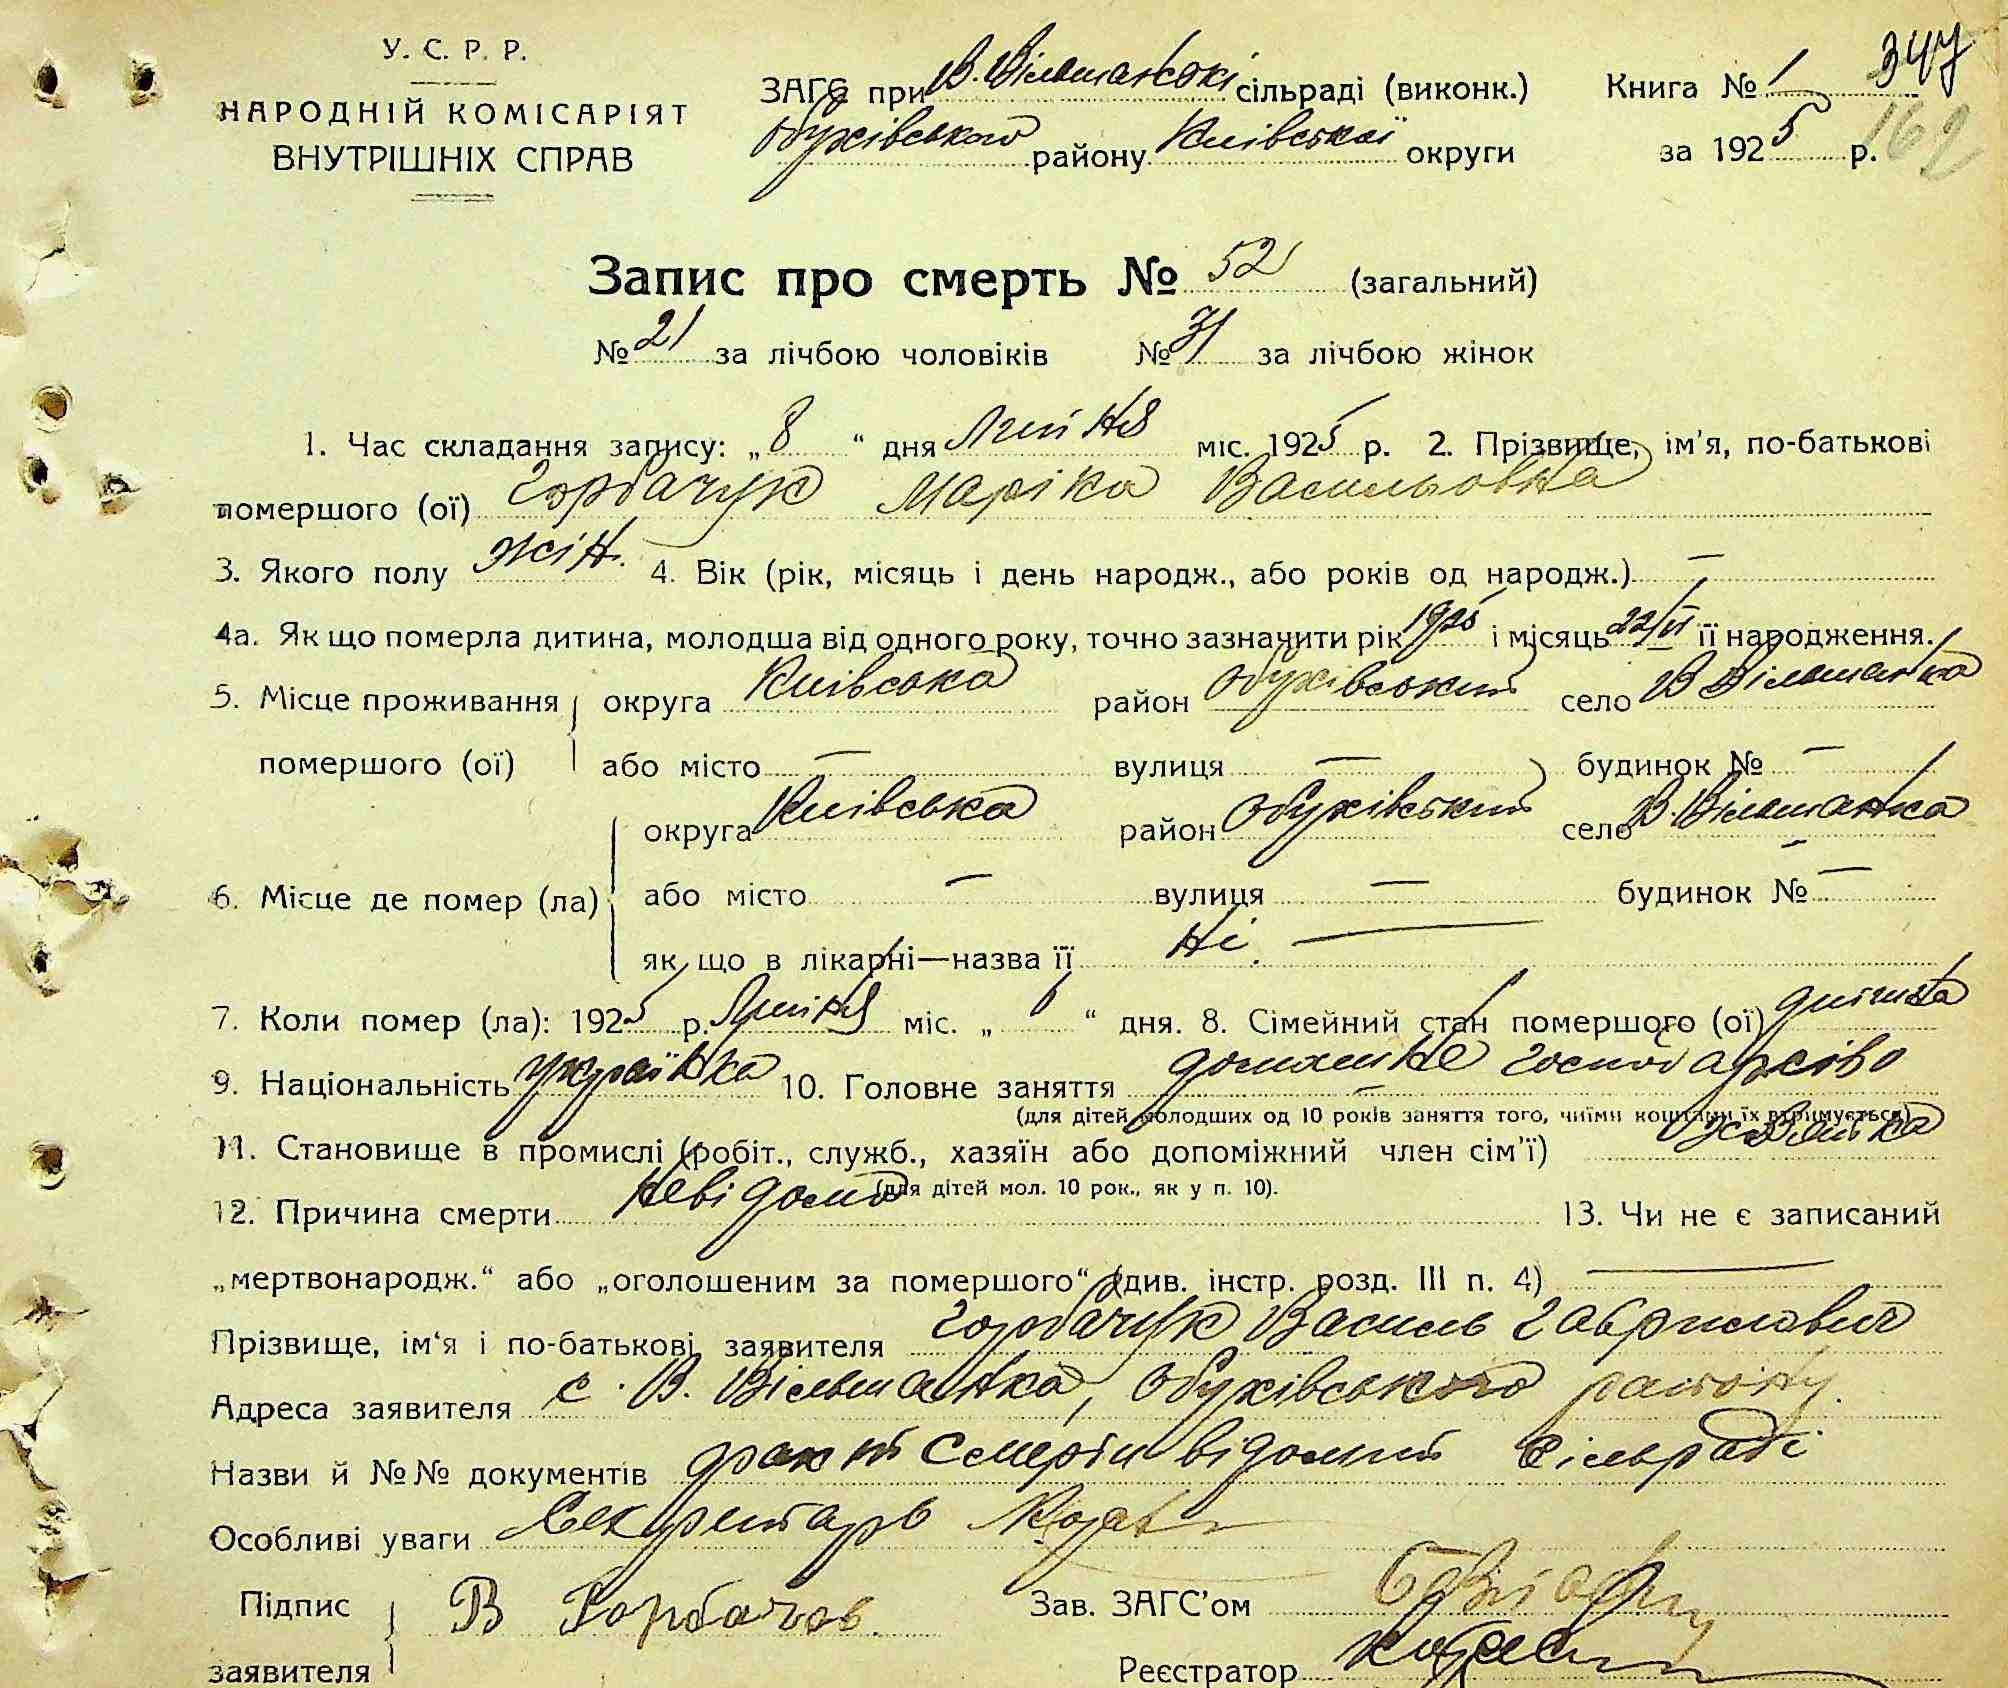 У. С. Р. Р.
НАРОДНІЙ КОМІСАРІЯТ
ВНУТРІШНІХ СПРАВ
ЗАГС при В. Вільшанські сільраді (виконк.)
Обухівського району Київської округи
Книга № 1 347
за 1925 р. 162
Запис про смерть № 52 (загальний)
№ 21 за лічбою чоловіків № 31 за лічбою жінок
1. Час складання запису: „8“ дня Липня міс. 1925 р. 2. Прізвище, ім'я, по-батькові
помершого (ої) Горбачук Маріка Васильовна
3. Якого полу жін. 4. Вік (рік, місяць і день народж., або років од народж.) —
4а. Як що померла дитина, молодша від одного року, точно зазначити рік 1925 і місяць 22/VI її народження.
5. Місце проживання округа Київська район Обухівський село В Вільшанка
помершого (ої) або місто — вулиця — будинок № —
округа Київська район Обухівський село В. Вільшанка
6. Місце де помер (ла) або місто — вулиця — будинок № —
як що в лікарні—назва її Ні. —
7. Коли помер (ла): 1925 р. Липня міс. „ 6 “ дня. 8. Сімейний стан помершого (ої) дитина
9. Національність українка 10. Головне заняття домашнє господарсіво
(для дітей молодших од 10 років заняття того, чиїми коштами їх втримується)
11. Становище в промислі (робіт., служб., хазяїн або допоміжний член сім'ї)
(для дітей мол. 10 рок., як у п. 10).
12. Причина смерти невідомо 13. Чи не є записаний
„мертвонародж.“ або „оголошеним за помершого“ (див. інстр. розд. III п. 4) —
Прізвище, ім'я і по-батькові заявителя Горбачук Василь Гаврилович
Адреса заявителя с. В. Вільшанка, Обухівського району.
Назви й №№ документів факт смерти відомий сільраді
Особливі уваги Секретарь
Підпис В Горбачов. Зав. ЗАГС'ом
заявителя Реєстратор